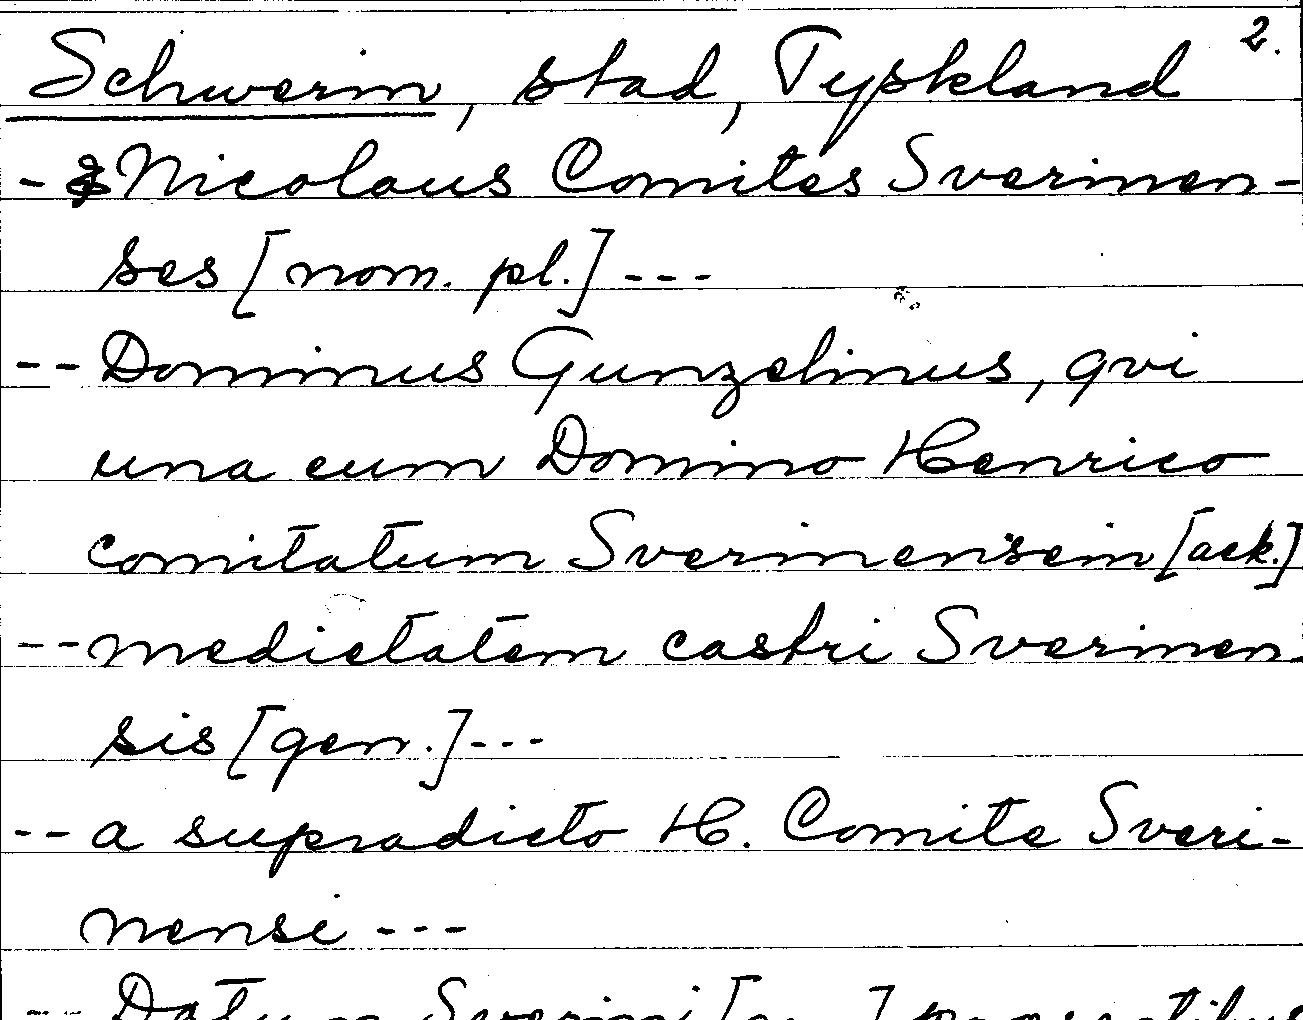 2.
Schwerin, stad, Tyskland
- & Nicolaus Comites Sverinen-
ses [nom. pl.] ---
-- Dominus Gunzelinus, qvi
una cum Domino Henrico
comitatum Sverinensem [ack.]
-- medietatem castri Sverinen
sis [gen.] ---
-- a supradicto H. Comite Sveri-
nensi ---
-- Datum Sverini